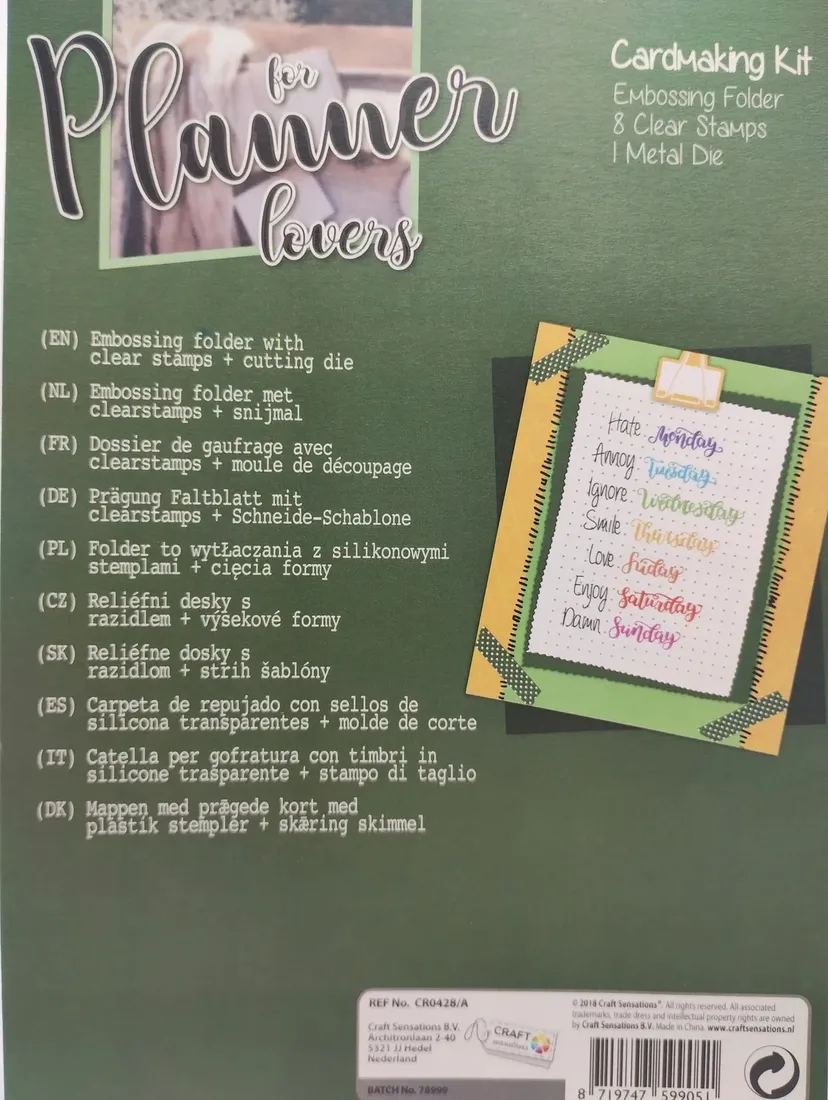 Planner
for
lovers
Cardmaking Kit
Embossing Folder
8 Clear Stamps
1 Metal Die
(EN) Embossing folder with
clear stamps + cutting die
(NL) Embossing folder met
clearstamps + snijmal
(FR) Dossier de gaufrage avec
clearstamps + moule de découpage
(DE) Prägung Faltblatt mit
clearstamps + Schneide-Schablone
(PL) Folder to wytŁaczania z silikonowymi
stemplami + cięcia formy
(CZ) Reliéfni desky s
razidlem + výsekové formy
(SK) Reliéfne dosky s
razidlom + strih šablóny
(ES) Carpeta de repujado con sellos de
silicona transparentes + molde de corte
(IT) Catella per gofratura con timbri in
silicone trasparente + stampo di taglio
(DK) Mappen med prægede kort med
plastik stempler + skæring skimmel
Hate Monday
Annoy Tuesday
Ignore Wednesday
Smile Thursday
Love Friday
Enjoy Saturday
Damn Sunday
REF No. CR0428/A
Craft Sensations B.V.
Architronlaan 2-40
5321 JJ Hedel
Nederland
BATCH No. 78999
CRAFT
sensations
© 2018 Craft Sensations®. All rights reserved. All associated
trademarks, trade dress and intellectual property rights are owned
by Craft Sensations B.V. Made in China. www.craftsensations.nl
8 719747 599051